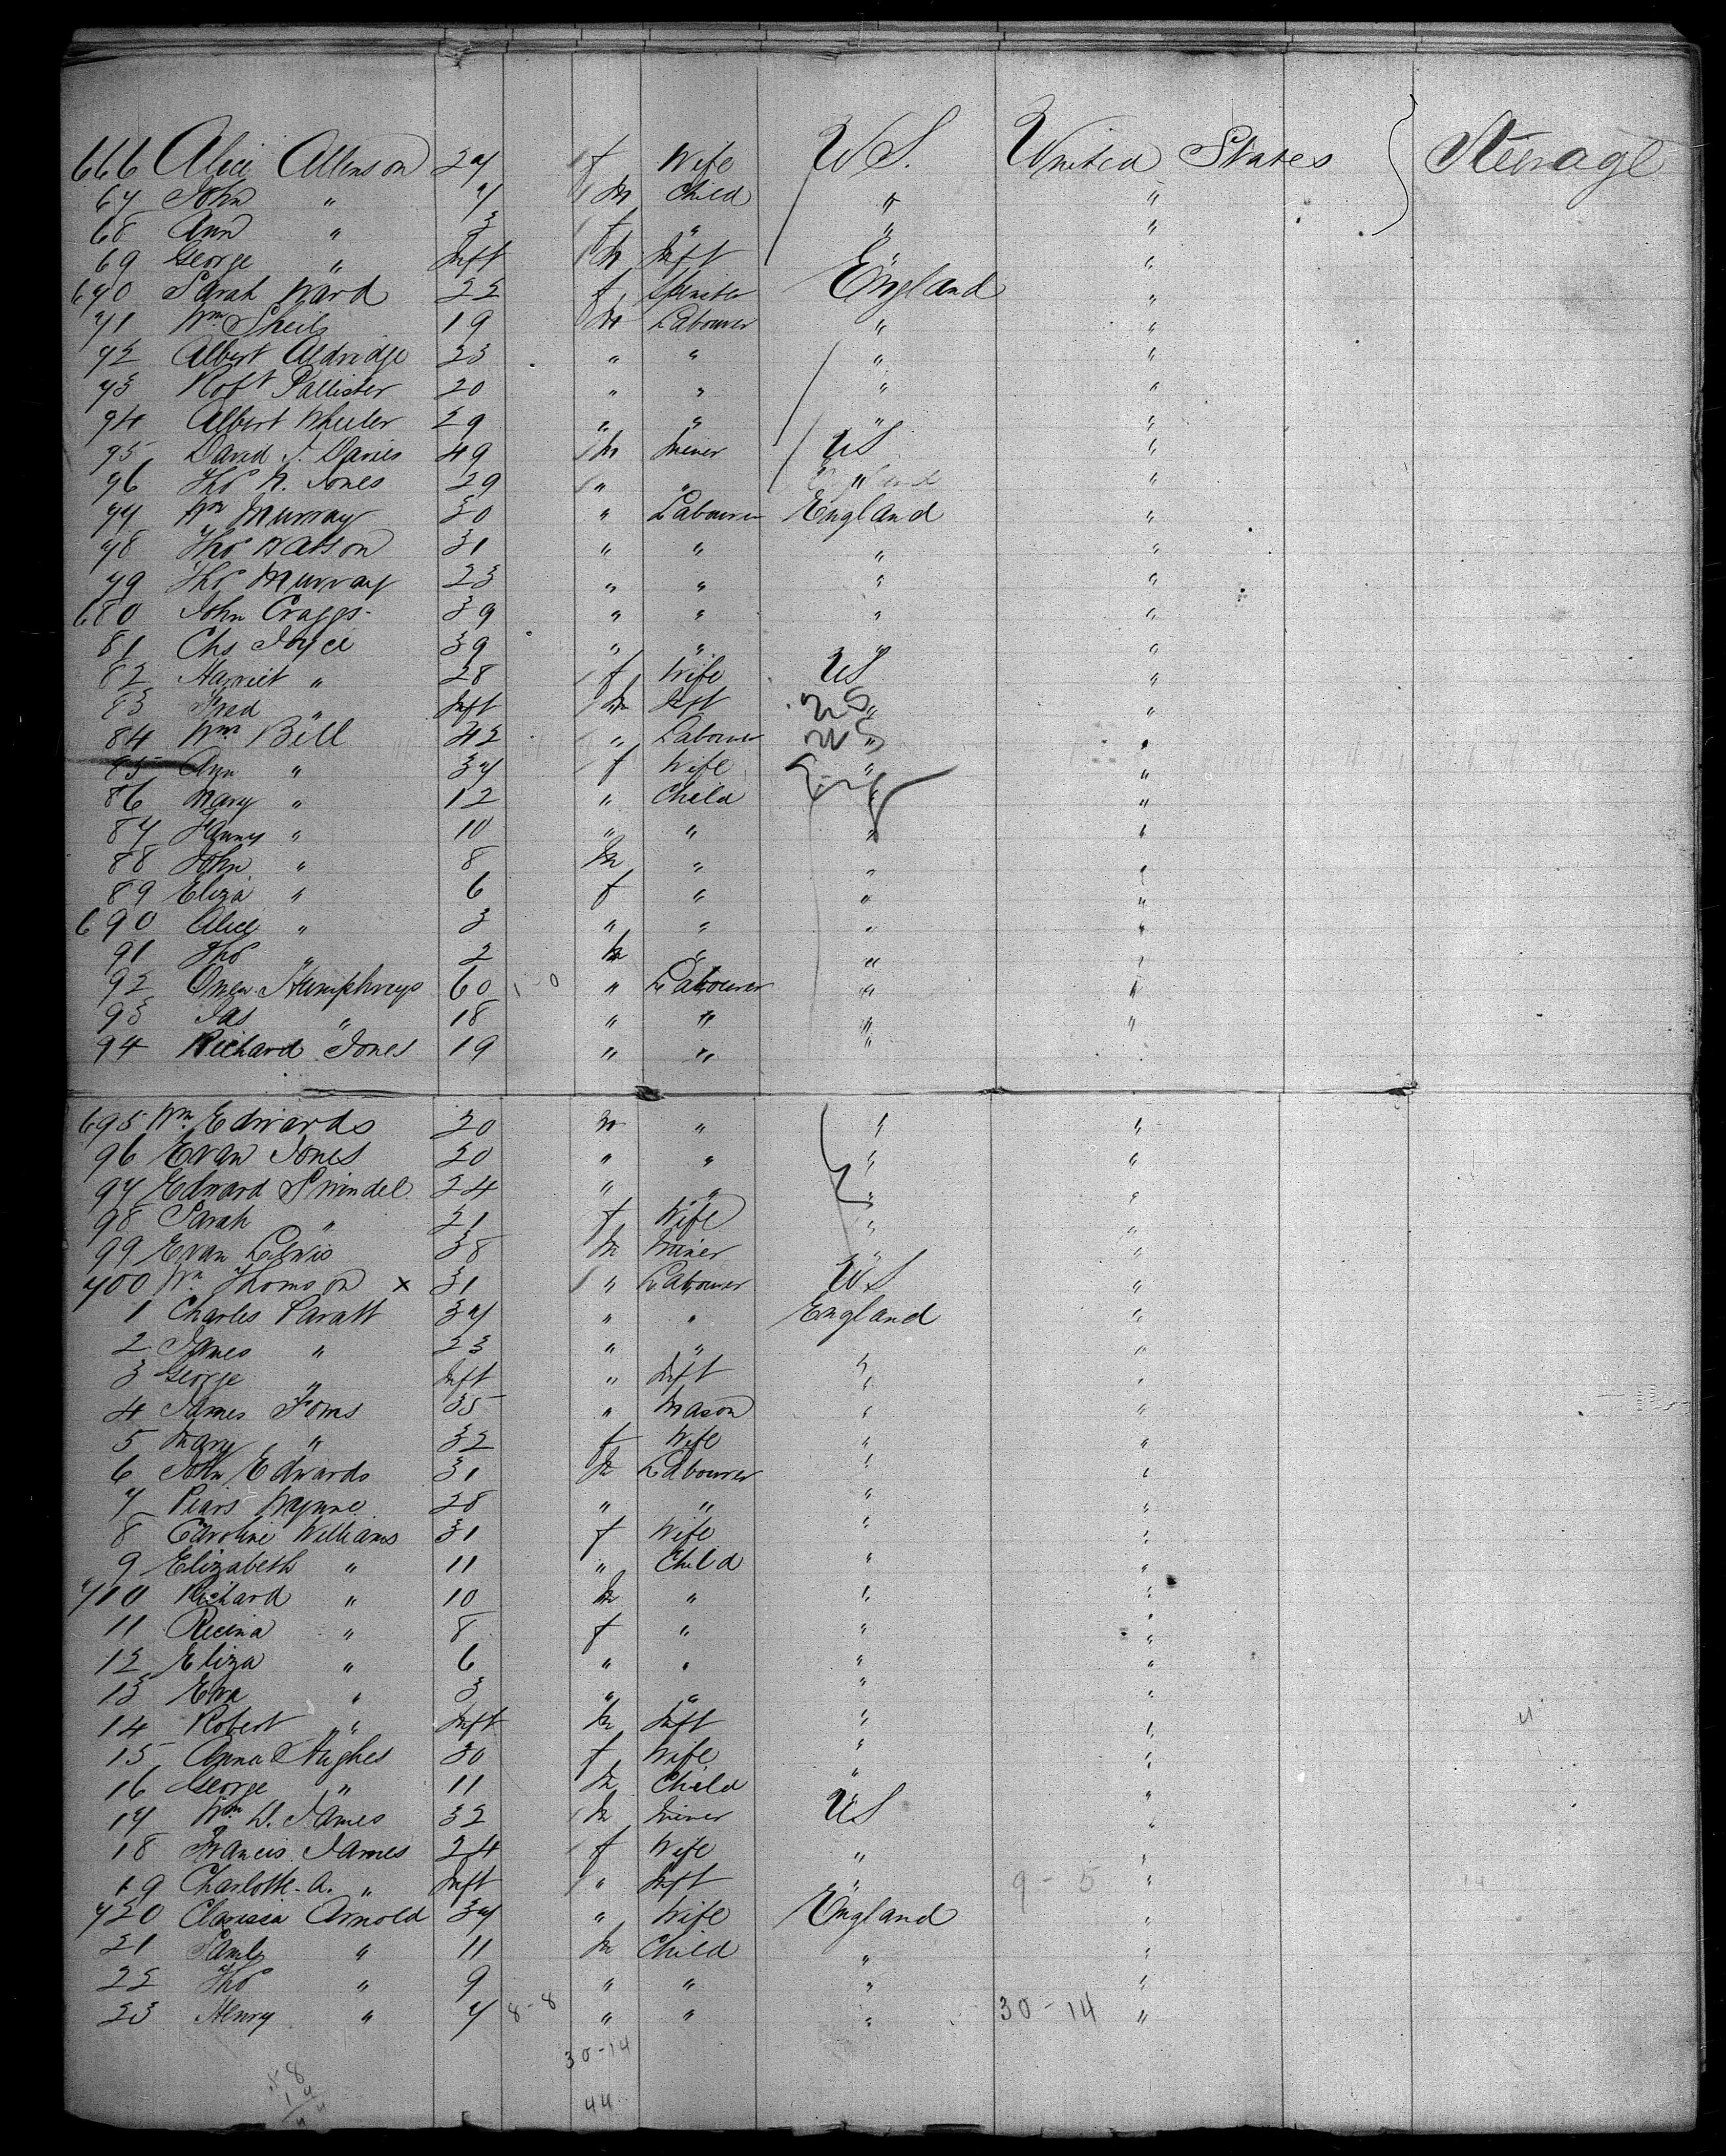 666 Alice Allenson 27 f Wife U.S. United States } Steerage
67 John " 7 m Child " "
68 Ann " 3 f " " "
69 George " Inft m Inft " "
670 Sarah Ward 22 f Spinster England "
71 Wm Sheils 19 m Labourer " "
72 Albert Aldridge 23 " " " "
73 Robt Pallister 20 " " " "
94 Albert Wheeler 29 " " " "
95 David J. Davies 49 m Miner US "
96 Thos N. Jones 29 " " " "
77 Wm Murray 30 " Labourer England "
78 Thos Watson 31 " " " "
79 Thos Murray 23 " " " "
680 John Craggs 39 " " " "
81 Chs Joyce 39 " " " "
82 Harriet " 28 f Wife US "
83 Fred " Inft m Inft US " "
84 Wm Bell 42 " Labourer US " "
85 Ann " 37 f Wife Eng " "
86 Mary " 12 " Child " "
87 Fanny " 10 " " " "
88 John " 8 m " " "
89 Eliza " 6 f " " "
690 Alice " 3 " " " "
91 Thos " 2 m " " "
92 Owen Humphreys 60 1-0 " Labourer " "
93 Jas " 18 " " " "
94 Richard Jones 19 " " "
695 Wm Edwards 20 m " " "
96 Evan Jones 20 " " " "
97 Edward Swindel 24 " " " "
98 Sarah " 21 f Wife " "
99 Evan Lewis 38 m Miner " "
700 Wm Thomson x 31 " Labourer US "
1 Charles Paratt 37 " " England "
2 James " 23 " " "
3 George " Inft " Inft " "
4 James Toms 35 " Mason " "
5 Mary " 32 f Wife " "
6 John Edwards 31 m Labourer " "
7 Piars Wynne 28 " " " "
8 Caroline Williams 31 f Wife " "
9 Elizabeth " 11 " Child " "
710 Richard " 10 m " " "
11 Recina " 8 f " " "
12 Eliza " 6 " " " "
13 Eva " 3 " " " "
14 Robert " Inft m Inft " "
15 Anna Hughes 30 f Wife " "
16 George " 11 m Child " "
17 Wm D. James 32 m Miner US "
18 Francis James 24 f Wife " "
19 Charlotte A. " Inft " Inft " 9-5 "
720 Clarissa Arnold 37 " Wife England "
21 Saml " 11 m Child " "
22 Thos " 9 " " " "
23 Henry " 7 8-8 " " " 30-14 "
30-14
44